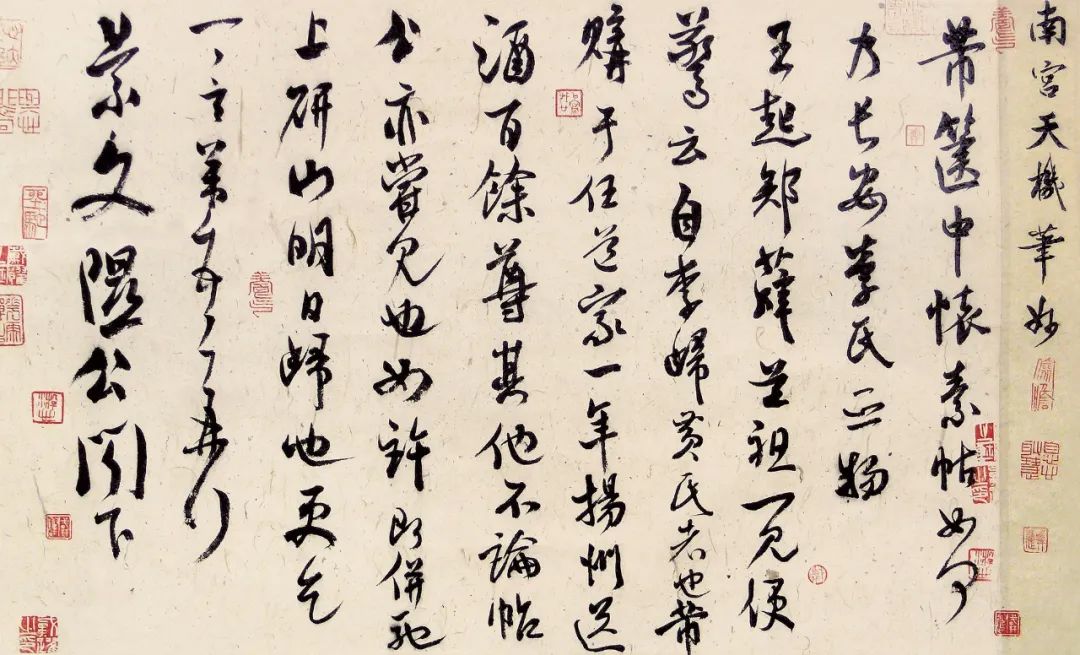 南宮天機筆妙
芾篋中懷素帖如何
乃長安李氏之物
王起郎薛道祖一見便
驚云自李歸黃氏者也芾
購于任道家一年揚州送
酒百餘尊其他不論帖
公亦嘗見也如許即併馳
上研山明日歸也更乞
一言芾頓首再拜
景文隰公閣下